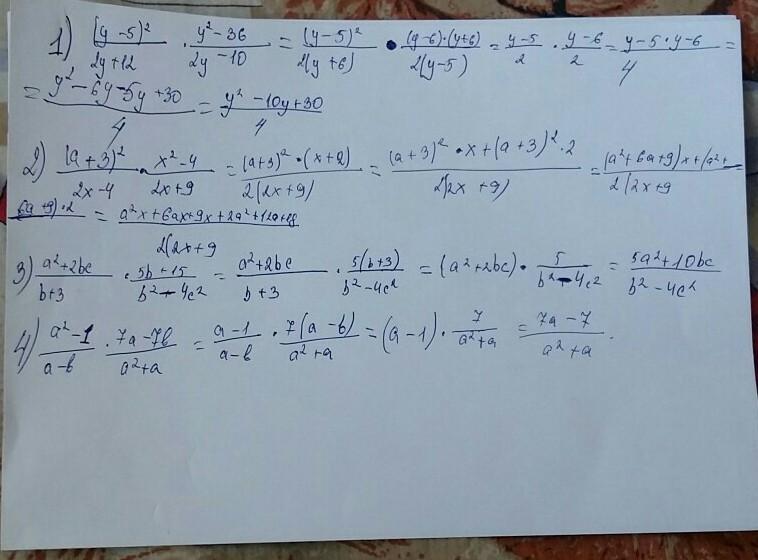 1) (y-5)²/2y+12 · y²-36/2y-10 = (y-5)²/2(y+6) · (y-6)·(y+6)/2(y-5) = y-5/2 · y-6/2 = y-5·y-6/4 =
= y²-6y-5y+30/4 = y²-10y+30/4
2) (a+3)²/2x-4 · x²-4/2x+9 = (a+3)²·(x+2)/2(2x+9) = (a+3)²·x+(a+3)²·2/2(2x+9) = (a²+6a+9)x+(a²+/2(2x+9 =
6a+9)·2 = a²x+6ax+9x+2a²+12a+18/2(2x+9
3) a²+2bc/b+3 · 5b+15/b²-4c² = a²+2bc/b+3 · 5(b+3)/b²-4c² = (a²+2bc)· 5/b²-4c² = 5a²+10bc/b²-4c²
4) a²-1/a-b · 7a-7b/a²+a = a-1/a-b · 7(a-b)/a²+a = (a-1)· 7/a²+a = 7a-7/a²+a.